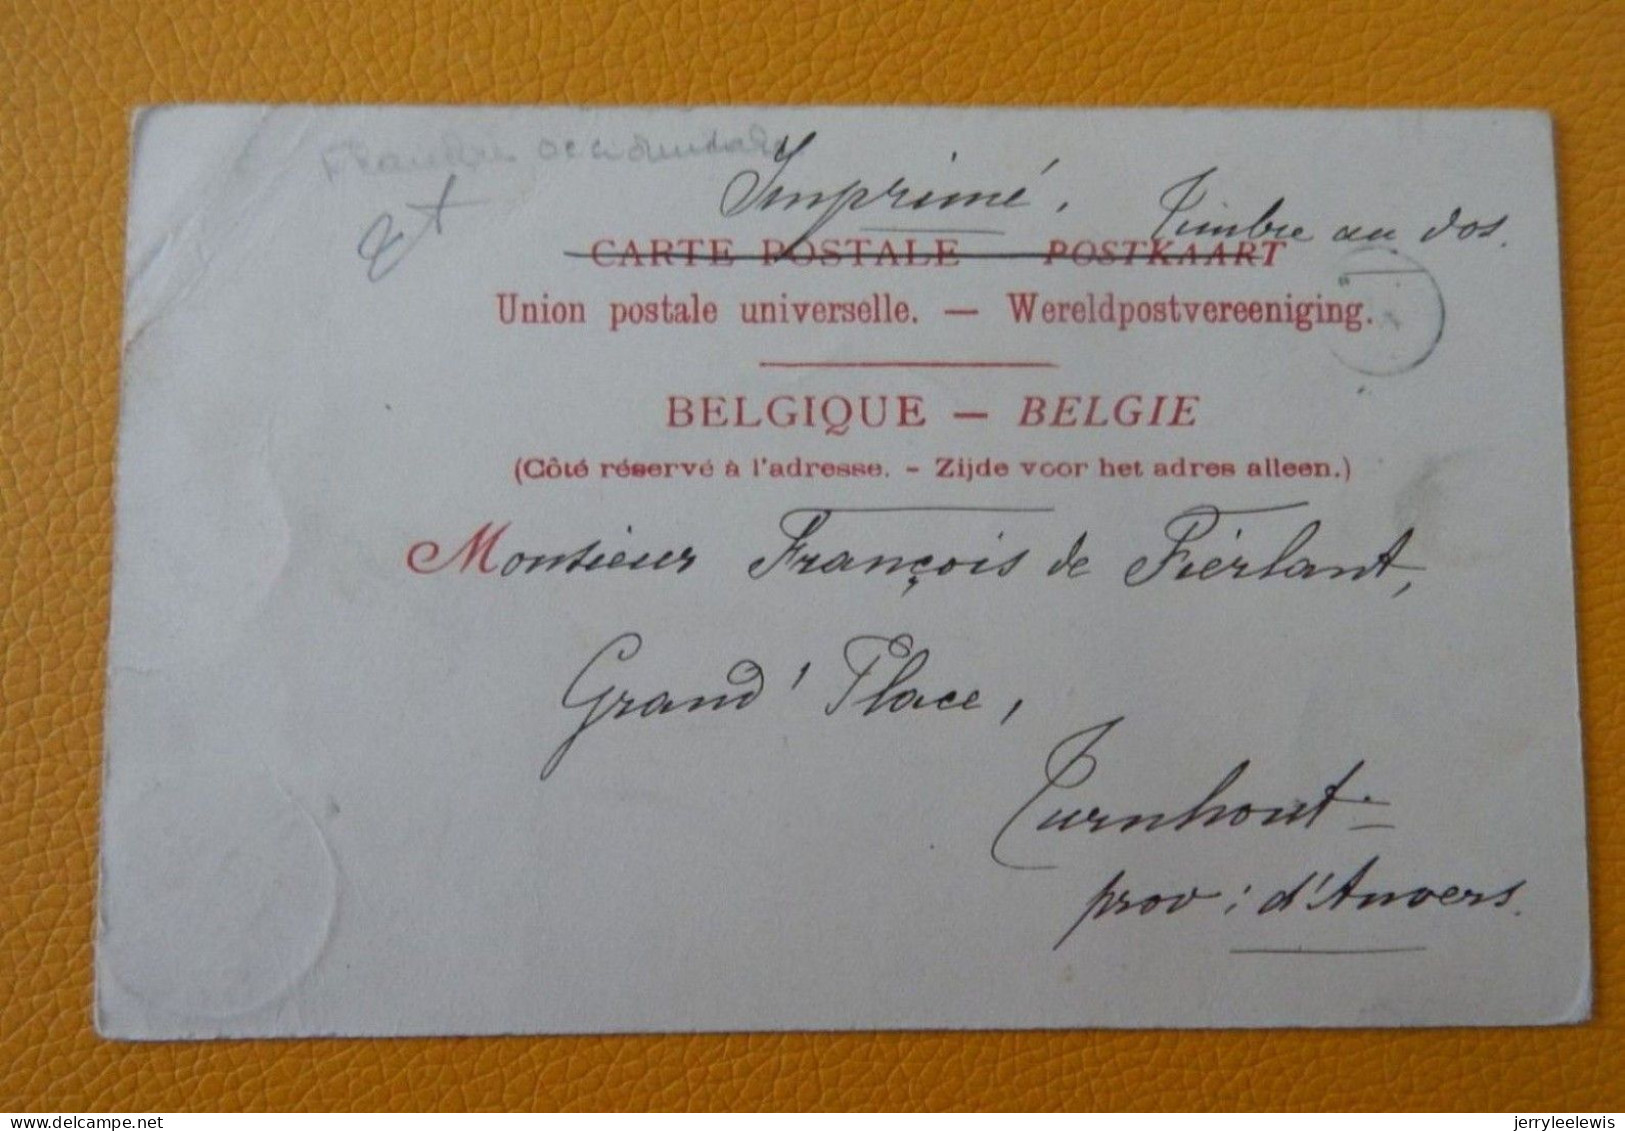 Flandre occidentale
et
Imprimé. Timbre au dos.
CARTE POSTALE POSTKAART
Union postale universelle. — Wereldpostvereeniging.
BELGIQUE — BELGIE
(Côté réservé à l'adresse. - Zijde voor het adres alleen.)
Monsieur François de Fierlant,
Grand' Place,
Turnhout
prov: d'Anvers.
delcampe.net
jerryleelewis